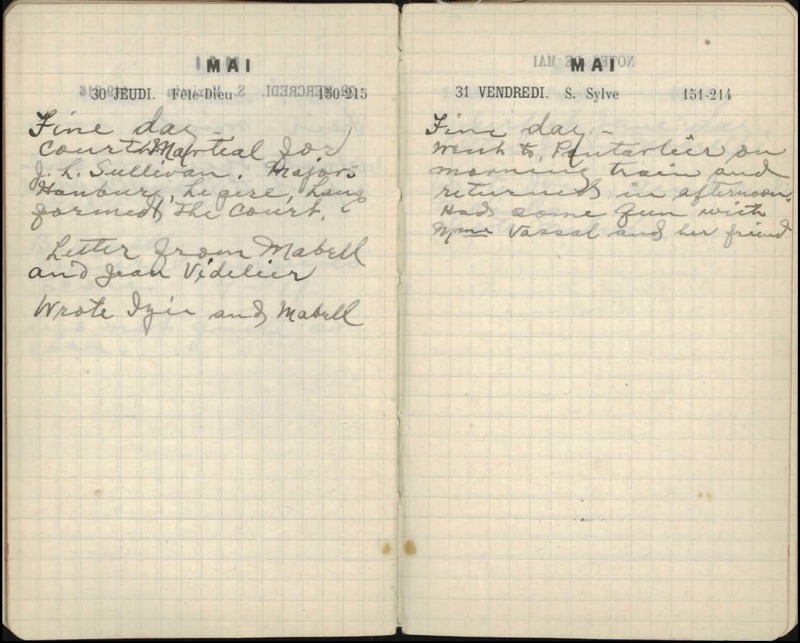 MAI
30 JEUDI. Fête-Dieu 150-215
Fine day -
Court Martial for
J. L. Sullivan. Majors
Hanbury, Legere, Lang
formed the Court.
Letter from Mabell
and Jean Videlier
Wrote Izie and Mabell
NOTES DE MAI
MAI
31 VENDREDI. S. Sylve 151-214
Fine day -
Went to Pontarlier on
morning train and
returned in afternoon.
Had some fun with
Mme Vassal and her friend